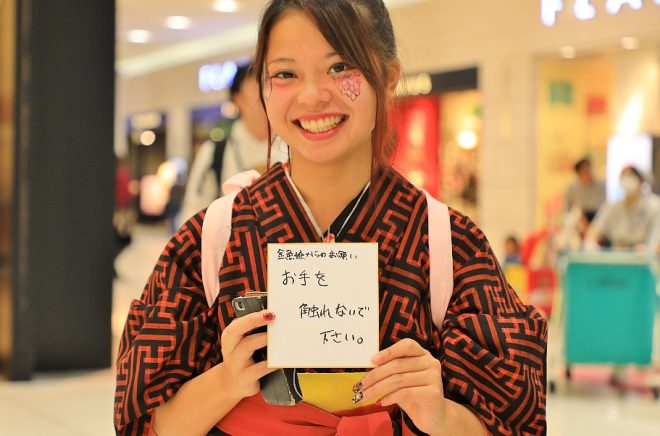 金魚姫からのお願い
お手を
触れないで
下さい。